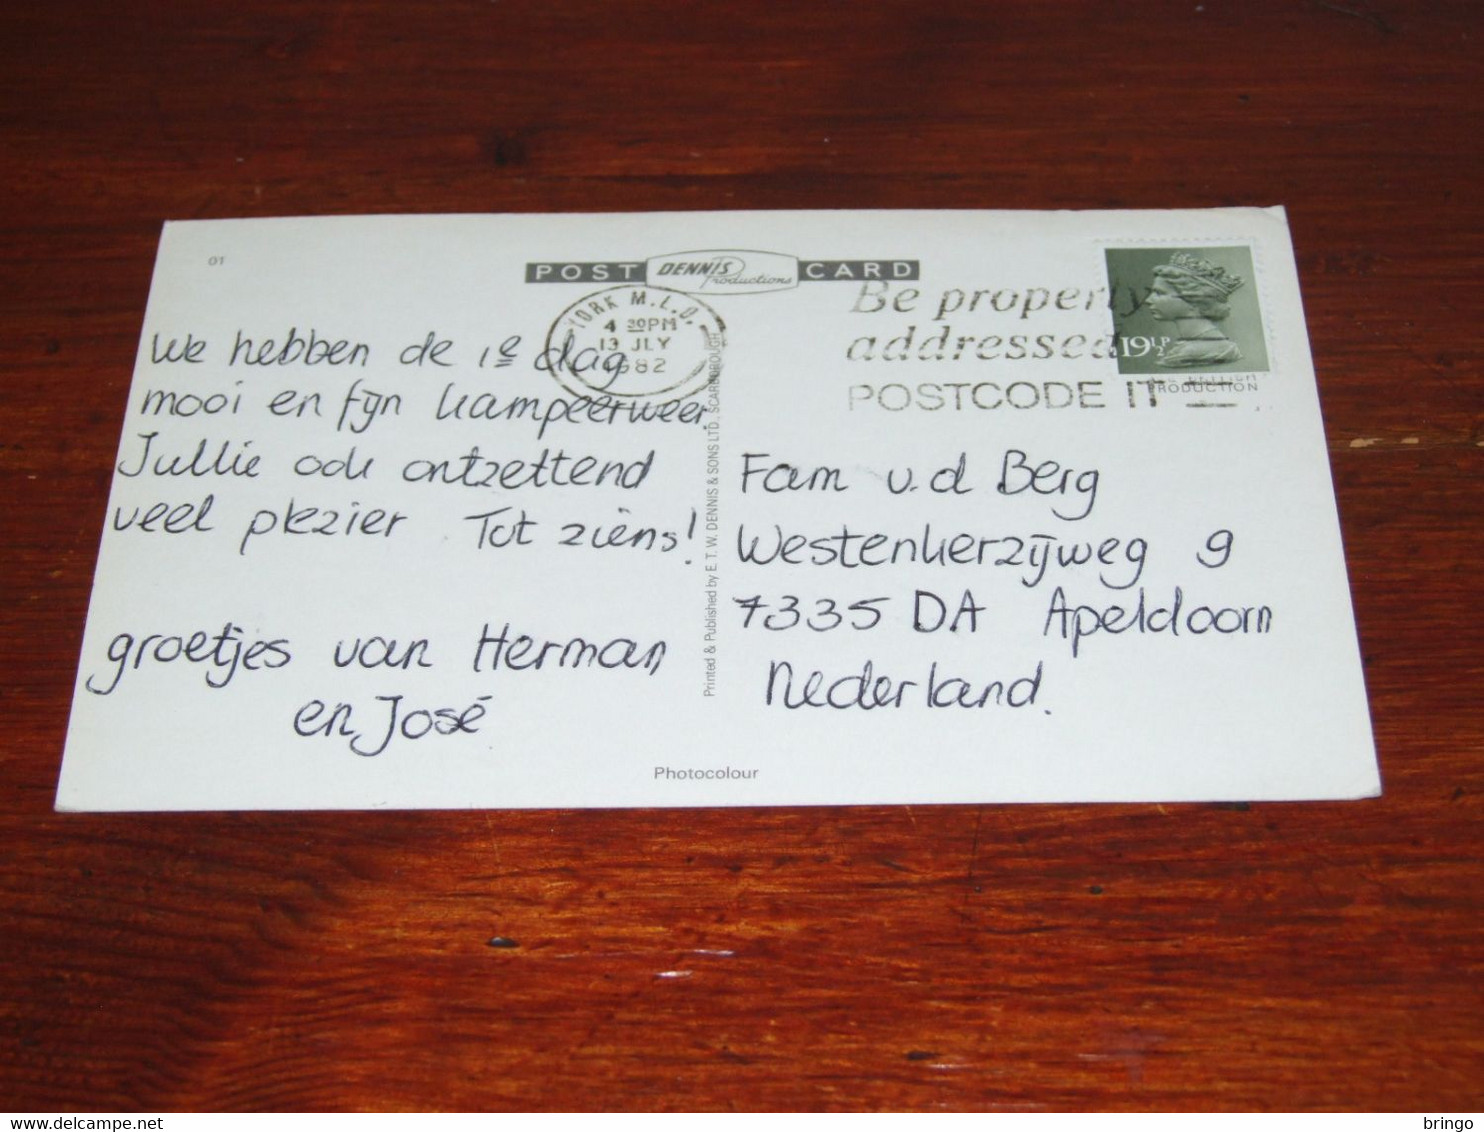 01
POST DENNIS Productions CARD
YORK M.L.O.
4 30PM
13 JLY
1982
Be properly
addressed
POSTCODE IT
19½P
PRODUCTION
We hebben de 1e dag
mooi en fijn kampeerweer.
Jullie ook ontzettend
veel plezier Tot ziens!
groetjes van Herman
en José
Printed & Published by E. T. W. DENNIS & SONS LTD., SCARBOROUGH
Fam v.d Berg
Westenkerzijweg 9
7335 DA Apeldoorn
Nederland.
Photocolour
delcampe.net
bringo